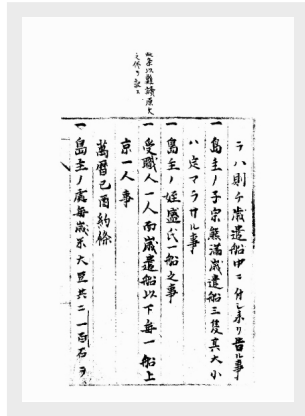 ラハ則チ歳遣船中ニ付シ来リ旨ル事
一 島主ノ子宗熊満歳遣船三隻其大小
ハ定マラサル事
一 島主ノ姪盛氏一船之事
一 受職人一人両歳遣船以下毎一船上
京一人事
萬暦己酉約條
一 島主ノ處毎歳米大豆共ニ一百石ヲ